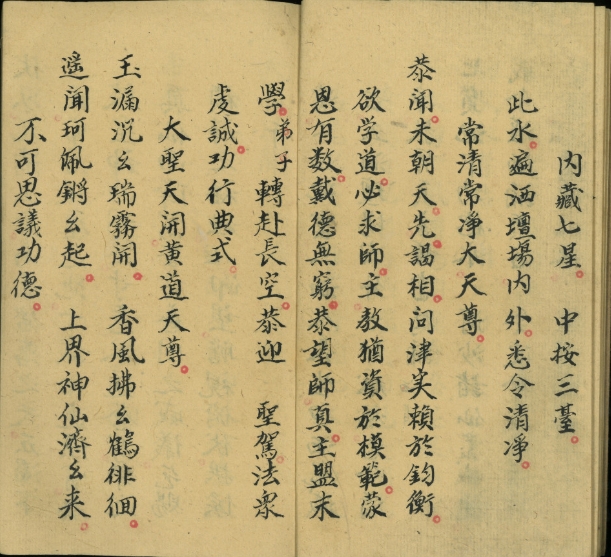 内藏七星。中按三臺。
此水遍洒壇場内外。悉令清净。
常清常净大天尊。
恭闻未朝天。先謁相。问津实賴於钧衡。
欲学道。必求師。主教猶資於模範。蒙
恩有数。戴德無窮。恭望師真主盟末
學。弟子轉赴長空。恭迎　聖駕。法衆
虔誠。功行典式。
大聖天開黄道天尊
玉漏沉幺瑞霧開。香風拂幺鶴徘徊。
遥聞珂佩鏘幺起。上界神仙濟幺来。
不可思議功德。